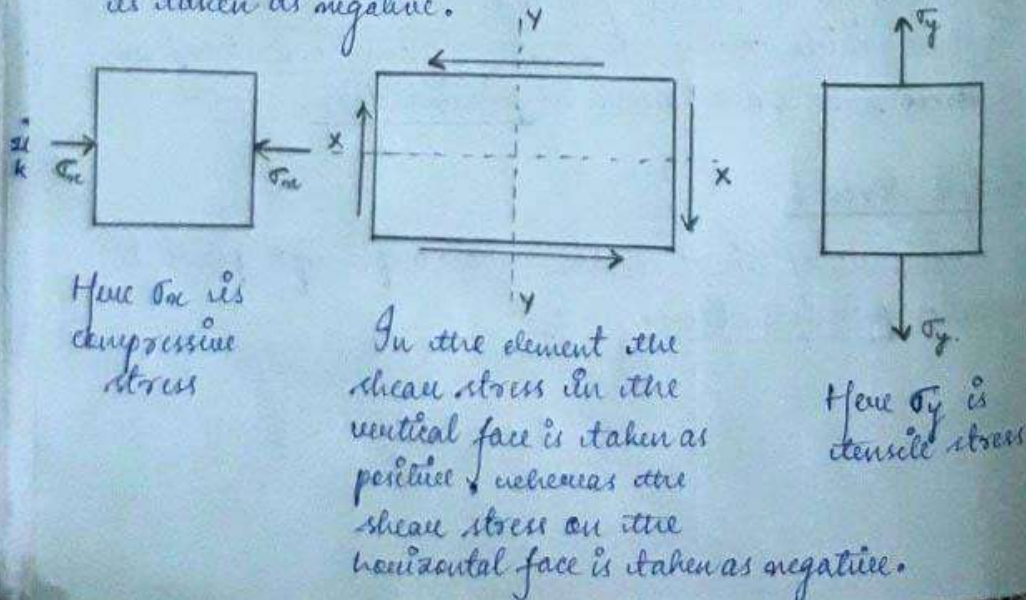 is taken as negative.
Y
σy
X
σx
σx
X
Y
σy.
Here σx is
compressive
stress
In the element the
shear stress in the
vertical face is taken as
positive, whereas the
shear stress on the
horizontal face is taken as negative.
Here σy is
tensile stress